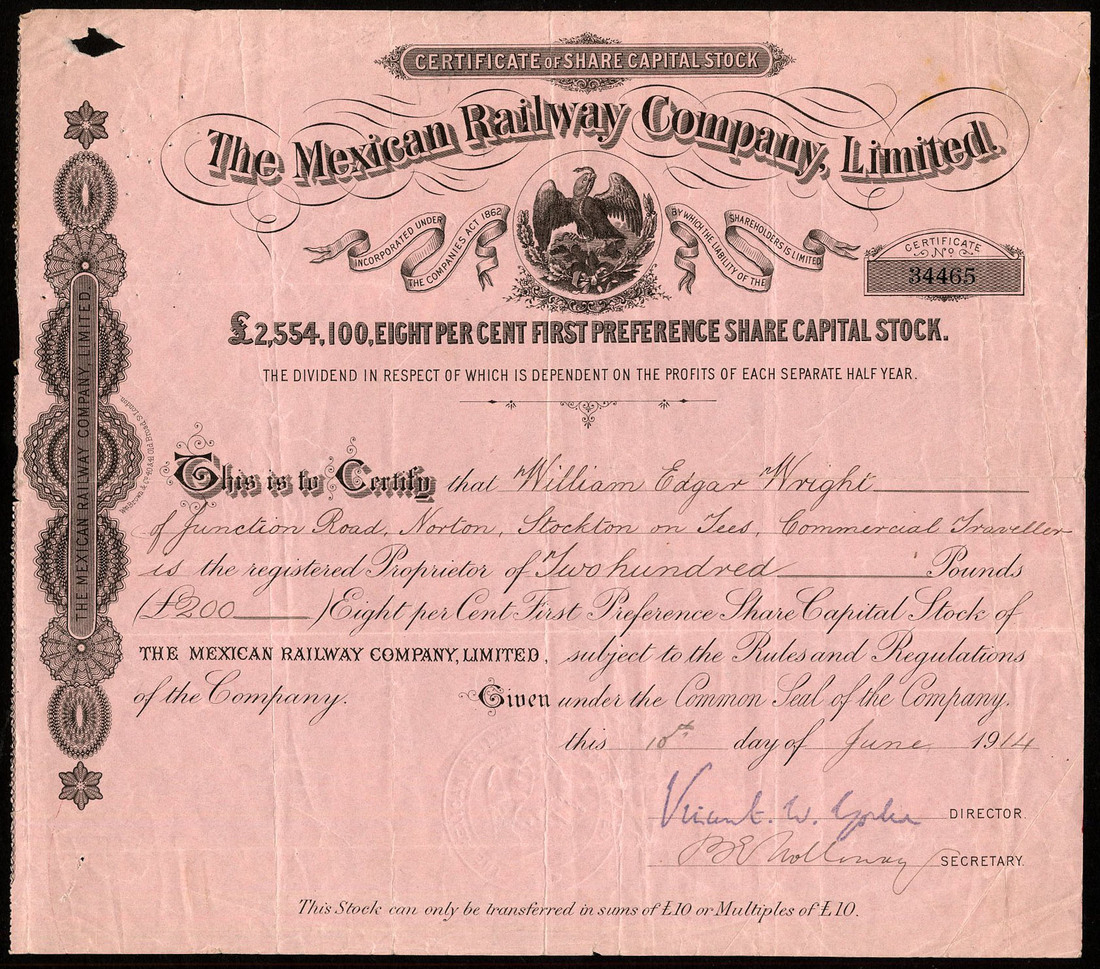 CERTIFICATE OF SHARE CAPITAL STOCK
The Mexican Railway Company, Limited.
INCORPORATED UNDER
THE COMPANIES ACT 1862
BY WHICH THE LIABILITY OF THE
SHAREHOLDERS IS LIMITED
CERTIFICATE
No
34465
£2,554,100, EIGHT PER CENT FIRST PREFERENCE SHARE CAPITAL STOCK.
THE DIVIDEND IN RESPECT OF WHICH IS DEPENDENT ON THE PROFITS OF EACH SEPARATE HALF YEAR.
THE MEXICAN RAILWAY COMPANY, LIMITED.
This is to Certify that William Edgar Wright
of Junction Road, Norton, Stockton on Tees, Commercial Traveller
is the registered Proprietor of Two hundred Pounds
(£200 ) Eight per Cent First Preference Share Capital Stock of
THE MEXICAN RAILWAY COMPANY, LIMITED, subject to the Rules and Regulations
of the Company. Given under the Common Seal of the Company.
this 10th day of June 1914
W. DIRECTOR.
Holloway SECRETARY.
This Stock can only be transferred in sums of £10 or Multiples of £10.